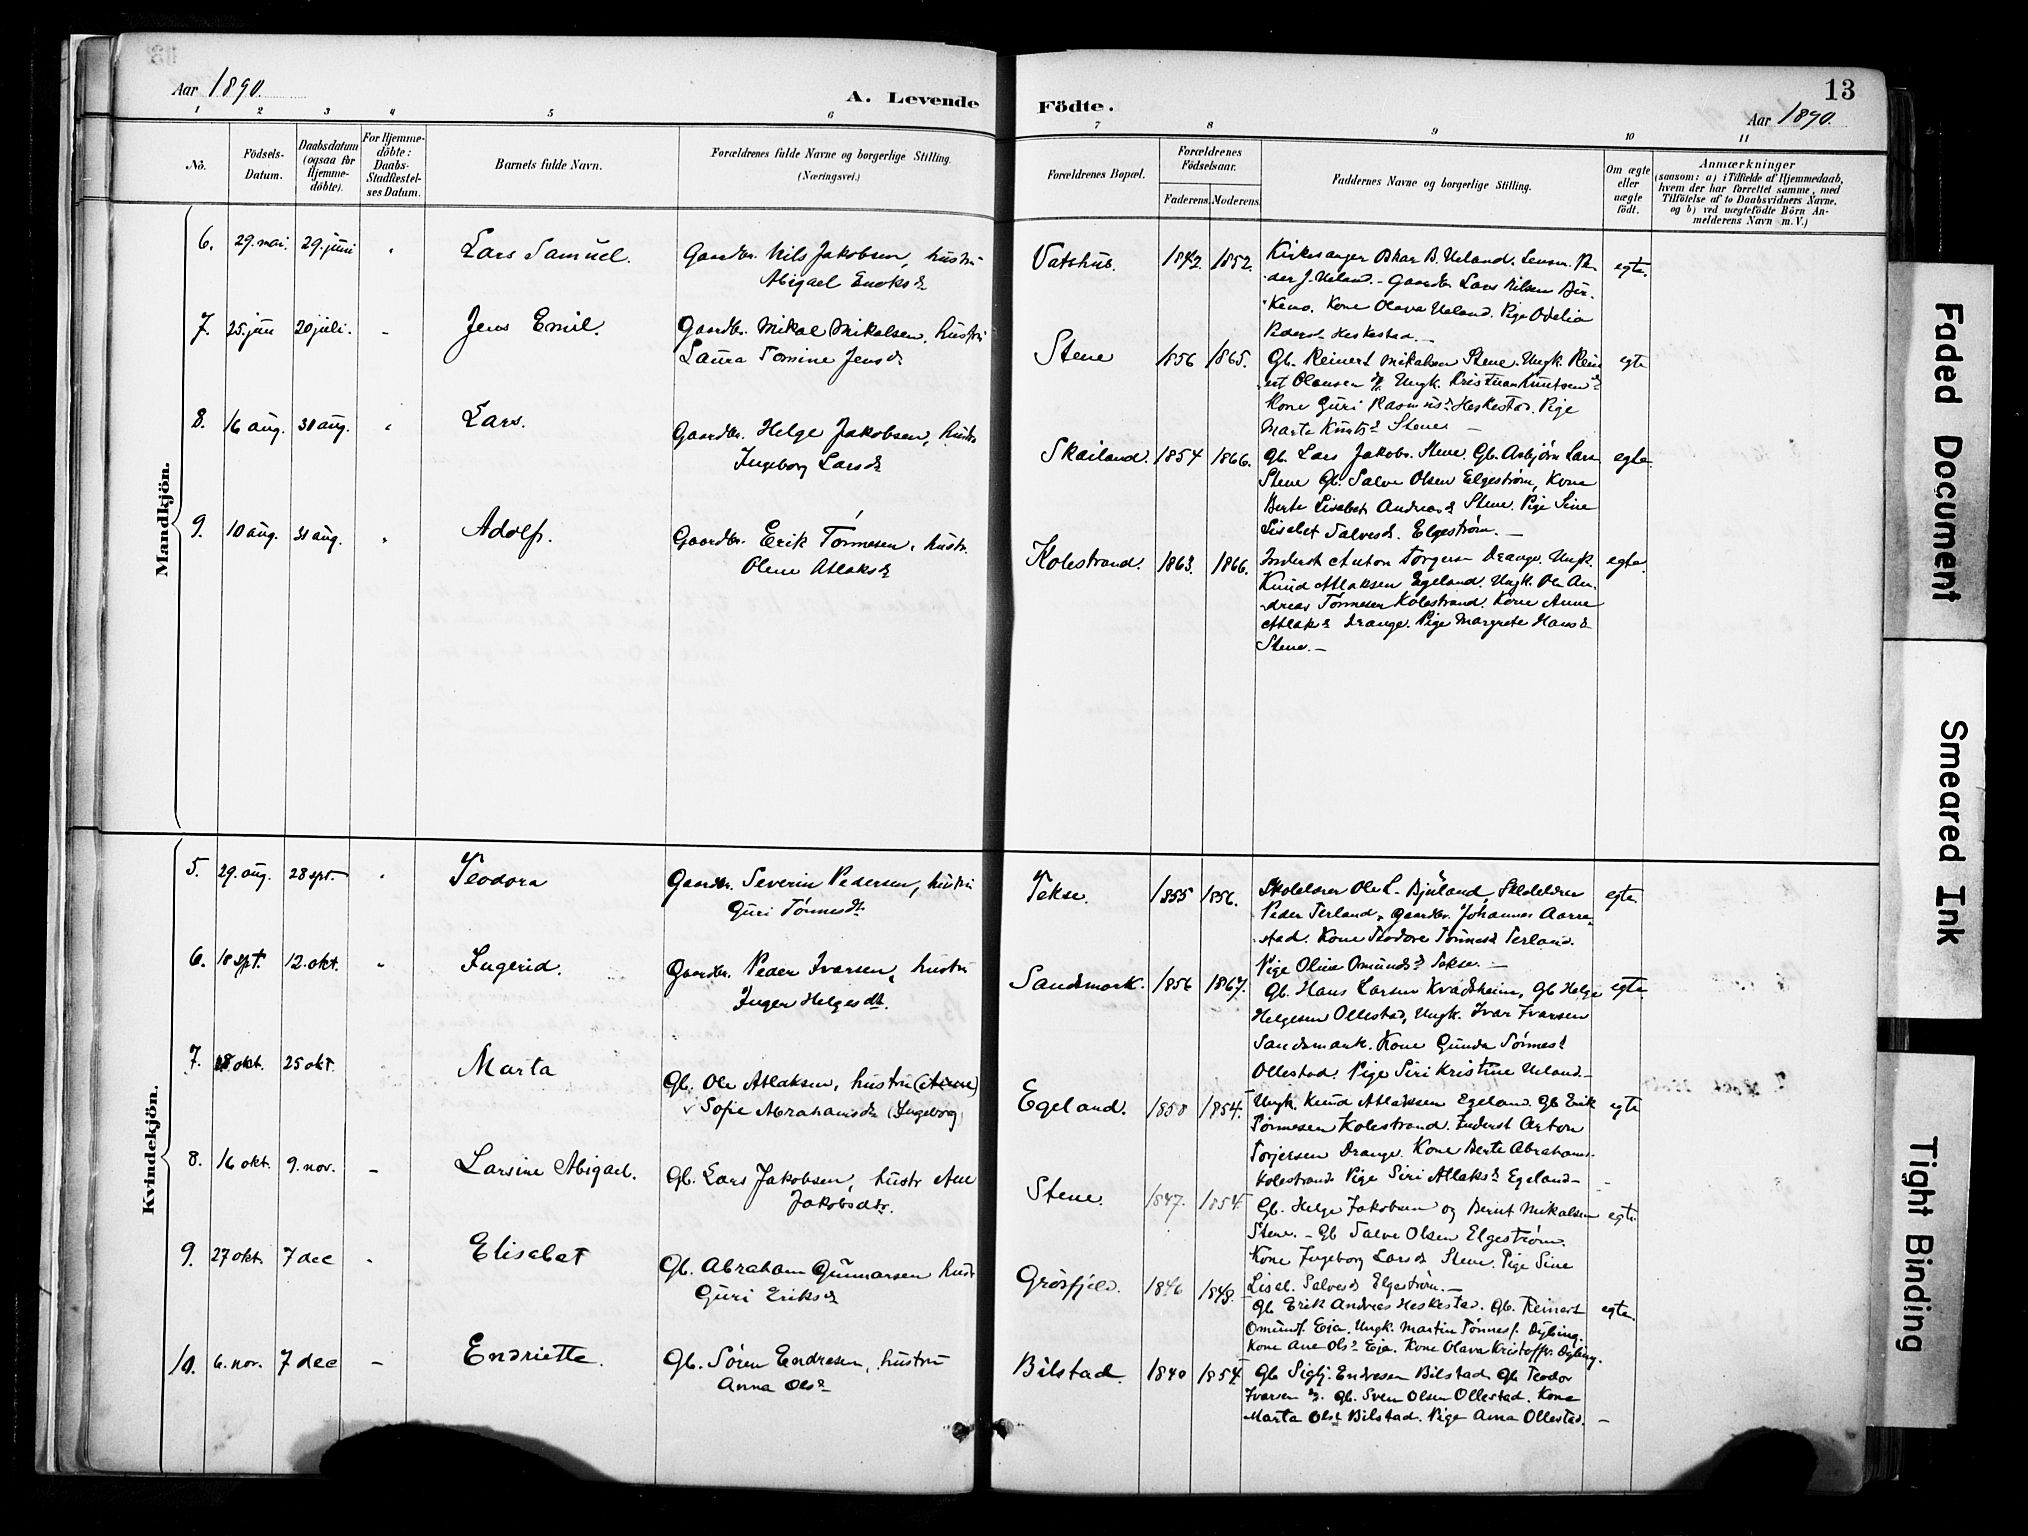 Aar 1890.
A. Levende
Födte.
13
Aar 1890.
1 2 3 4 5 6 7 8 9 10 11
No.
Födsels-
Datum.
Daabsdatum
(ogsaa for
Hjemme-
döbte).
For Hjemme-
döbte:
Daabs-
Stadfestel-
ses Datum.
Barnets fulde Navn.
Forældrenes fulde Navne og borgerlige Stilling.
(Næringsvei.)
Forældrenes Bopæl.
Forældrenes
Födselsaar.
Faderens. Moderens.
Faddernes Navne og borgerlige Stilling.
Om ægte
eller
uægte
födt.
Anmærkninger
(saasom: a) i Tilfælde af Hjemmedaab,
hvem der har forrettet samme, med
Tilföielse af to Daabsvidners Navne,
og b) ved uægtefödte Börn An-
melderens Navn m. V.)
Mandkjön.
6. 29. mai. 29. juni Lars Samuel. Gaardbr. Nils Jakobsen, hustru
Abigael Enoksd
Vatshus. 1842. 1852. Kirkesanger Oskar B. Ueland. Lensm. Pe-
der J. Ueland. - Gaardbr. Lars Nilsen Bir-
kemo. Kone Olava Ueland. Pige Odelia
Pedersd Heskestad. egte.
7. 25 juni 20 juli. Jens Emil. Gaardbr. Mikal Mikalsen, hustru
Laura Tomine Jensd
Stene 1856 1865. Gb. Reinert Mikalsen Stene. Ungk. Rein
ert Olausen Ungk. Kristian Knutsen
Kone Guri Rasmusd Heskestad. Pige
Marta Knutsd Stene. egte
8. 16 aug. 31 aug. Lars. Gaardbr. Helge Jakobsen, hustr
Ingeborg Larsd
Skailand. 1854 1866. Gb. Lars Jakobs. Stene. Gb. Asbjørn Lars
Stene Gb. Salve Olsen Elgestrøm, Kone
Berte Lisabet Andreasd Stene. Pige Sine
Lisabet Salvesd. Elgestrøm. egte
9. 10 aug. 31 aug. Adolf. Gaardbr. Erik Tønnesen, hustr.
Olene Atlaksd
Kolestrand. 1863. 1866. Inderst Anton Torgers Drange. Ungk.
Knud Atlaksen Egeland. Ungk. Ole An-
dreas Tønnesen Kolestrand. Kone Anne
Atlaksd Drange. Pige Margrete Hansd
Stene. egte.
Kvindekjön.
5. 29. aug. 28 spt. Teodora Gaardbr. Severin Pedersen, hustru
Guri Tønnesdt.
Tekse. 1855 1856. Skolelærer Ole L. Bjuland, Skolelærer
Peder Terland, Gaardbr. Johannes Aarre-
stad. Kone Teodore Tønnesd Terland.
Pige Oline Omundsd Tekse. egte
6. 18 spt. 12. okt. Ingerid. Gaardbr. Peder Ivarsen, hustru
Inger Helgesdt.
Sandsmark. 1856 1867. Gb. Hans Larsen Kvadsheim, Gb Helge
Helgesen Ollestad, Ungk. Ivar Ivarsen
Sandsmark. Kone Gunda Tønnesd
Ollestad. Pige Siri Kristine Ueland. egte
7. 8 okt. 25 okt. Marta Gb. Ole Atlaksen, hustru (Anne)
Sofie Abrahamsd (Ingeborg)
Egeland. 1850 1854. Ungk. Knud Atlaksen Egeland. Gb Erik
Tønnesen Kolestrand. Inderst Anton
Torjersen Drange. Kone Berte Abrahams-
Kolestrand Pige Siri Atlaksd Egeland egte
8. 16 okt. 9. nov. Larsine Abigael. Gb. Lars Jakobsen, hustr Ane
Jakobsdtr.
Stene. 1847. 1854 Gb. Helge Jakobsen og Bernt Mikalsen
Stene. - Gb Salve Olsen Elgestrøm.
Kone Ingeborg Larsd Stene. Pige Sine
Lisab. Salvesd Elgestrøm. egte
9. 27 okt. 7 dec Elisabet Gb. Abraham Gunnarsen hust
Guri Eriksd
Grøsfjeld. 1846 1848. Gb Erik Andreas Heskestad. Gb. Reinert
Omunds. Eia. Ungk. Martin Tønnes. Dybing.
Kone Ane Olsd Eia. Kone Olava Kristoffr. Dybing. egte.
10. 6. nov. 7 dec Endriette. Gb. Søren Endresen, hustru
Anna Olsd
Bilstad. 1840 1854 Gb Sigbj. Endresen Bilstad Gb Teodor
Ivarsen Gb. Sven Olsen Ollestad. Kone
Marta Olsd Bilstad. Pige Anna Ollestad.
Faded Document
Smeared Ink
Tight Binding